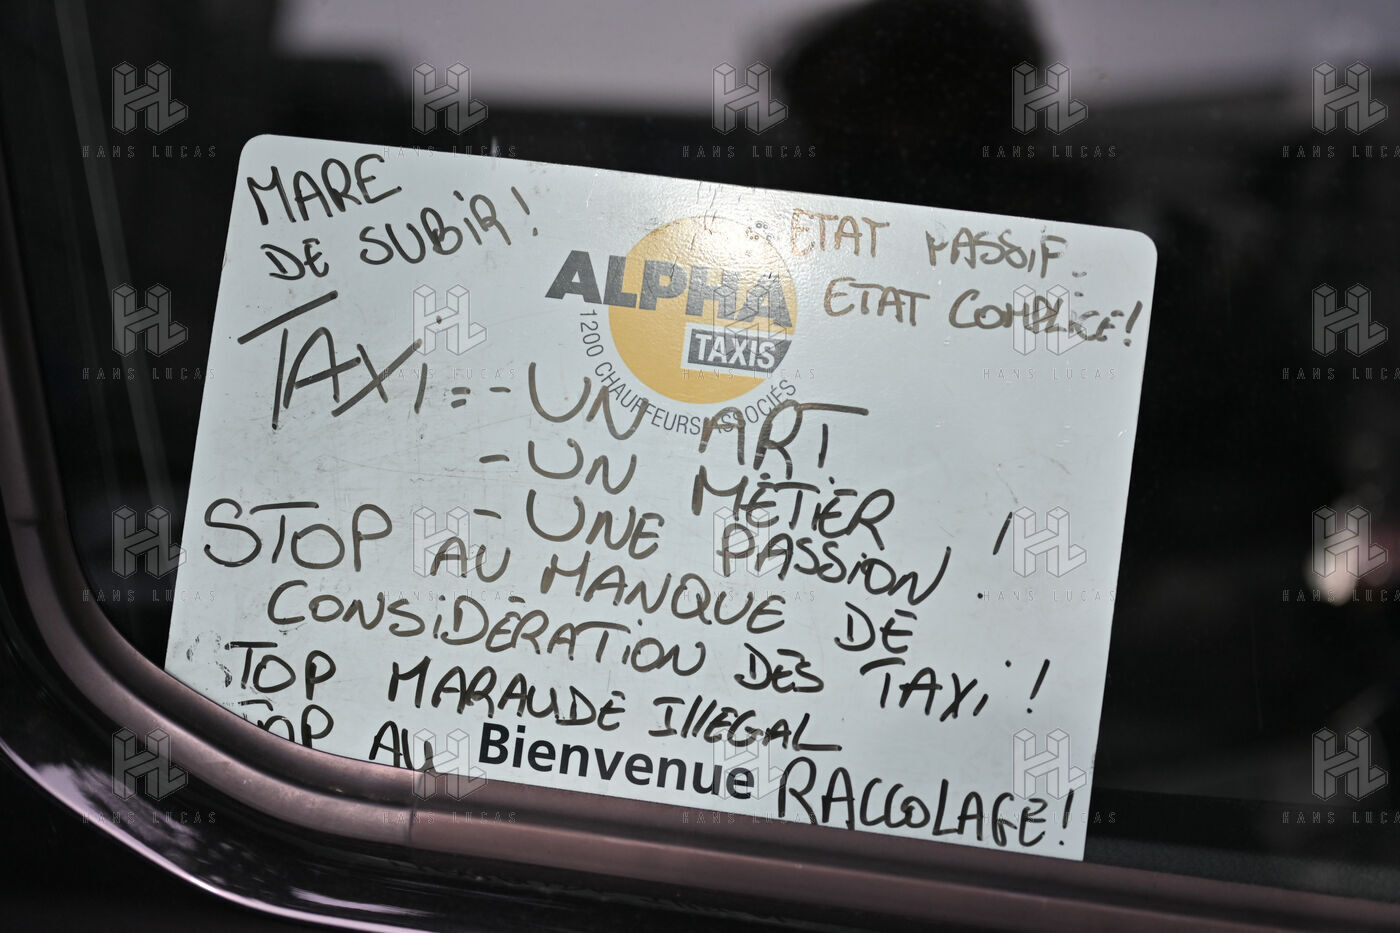 MARE
DE SUBIR!
ETAT PASSIF.
ETAT COMPLICE!
ALPHA
TAXIS
1200 CHAUFFEURS ASSOCIÉS
TAXI = - UN ART
- UN MÉTIER
- UNE PASSION !
STOP AU MANQUE DE
CONSIDÉRATION DES TAXI !
STOP MARAUDE ILLEGAL
STOP AU Bienvenue RACCOLAGE!
HANS LUCAS